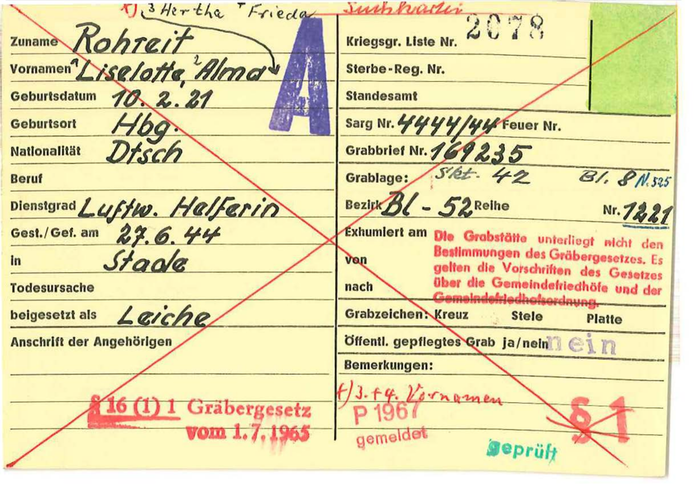 +) ³Hertha ⁴Frieda
Suchkartei
Zuname Rohreit
Vornamen ¹Liselotte, ²Alma
Geburtsdatum 10.2.21
Geburtsort Hbg.
Nationalität Dtsch
Beruf
Dienstgrad Luftw. Helferin
Gest./Gef. am 27.6.44
in Stade
Todesursache
beigesetzt als Leiche
Anschrift der Angehörigen
§ 16 (1) 1 Gräbergesetz
vom 1.7.1965
A
Kriegsgr. Liste Nr. 2078
Sterbe-Reg. Nr.
Standesamt
Sarg Nr. 4444/44 Feuer Nr.
Grabbrief Nr. 169235
Grablage: Skt. 42 Bl. 8 N.525
Bezirk Bl - 52 Reihe Nr. 1221
Exhumiert am
von
nach
Die Grabstätte unterliegt nicht den
Bestimmungen des Gräbergesetzes. Es
gelten die Vorschriften des Gesetzes
über die Gemeindefriedhöfe und der
Gemeindefriedhofsordnung.
Grabzeichen: Kreuz Stele Platte
Öffentl. gepflegtes Grab ja/nein nein
Bemerkungen:
+) 3.+4. Vornamen
P 1967
gemeldet
§ 1
geprüft